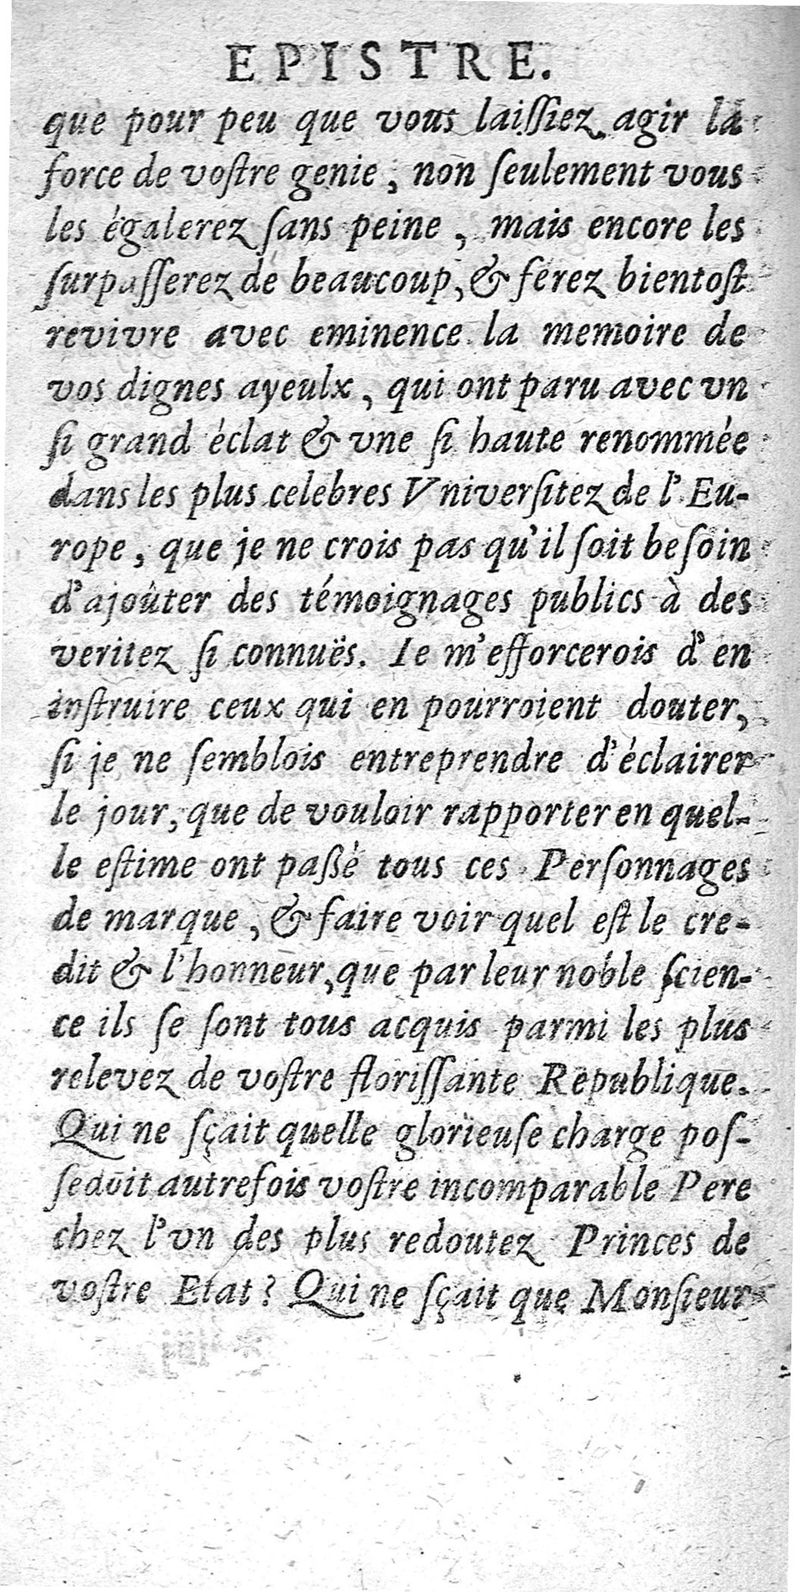 EPISTRE.
que pour peu que vous laiſſiez agir la
force de voſtre genie, non ſeulement vous
les égalerez ſans peine, mais encore les
ſurpaſſerez de beaucoup, & ferez bientoſt
revivre avec eminence la memoire de
vos dignes ayeulx, qui ont paru avec vn
ſi grand éclat & vne ſi haute renommée
dans les plus celebres Vniverſitez de l'Eu-
rope, que je ne crois pas qu'il ſoit beſoin
d'ajoûter des témoignages publics à des
veritez ſi connuës. Ie m'efforcerois d'en
inſtruire ceux qui en pourroient douter,
ſi je ne ſemblois entreprendre d'éclairer
le jour, que de vouloir rapporter en quel-
le eſtime ont paßé tous ces Perſonnages
de marque, & faire voir quel eſt le cre-
dit & l'honneur, que par leur noble ſcien-
ce ils ſe ſont tous acquis parmi les plus
relevez de voſtre floriſſante Republique.
Qui ne ſçait quelle glorieuſe charge poſ-
ſedoit autrefois voſtre incomparable Pere
chez l'vn des plus redoutez Princes de
voſtre Etat? Qui ne ſçait que Monſieur